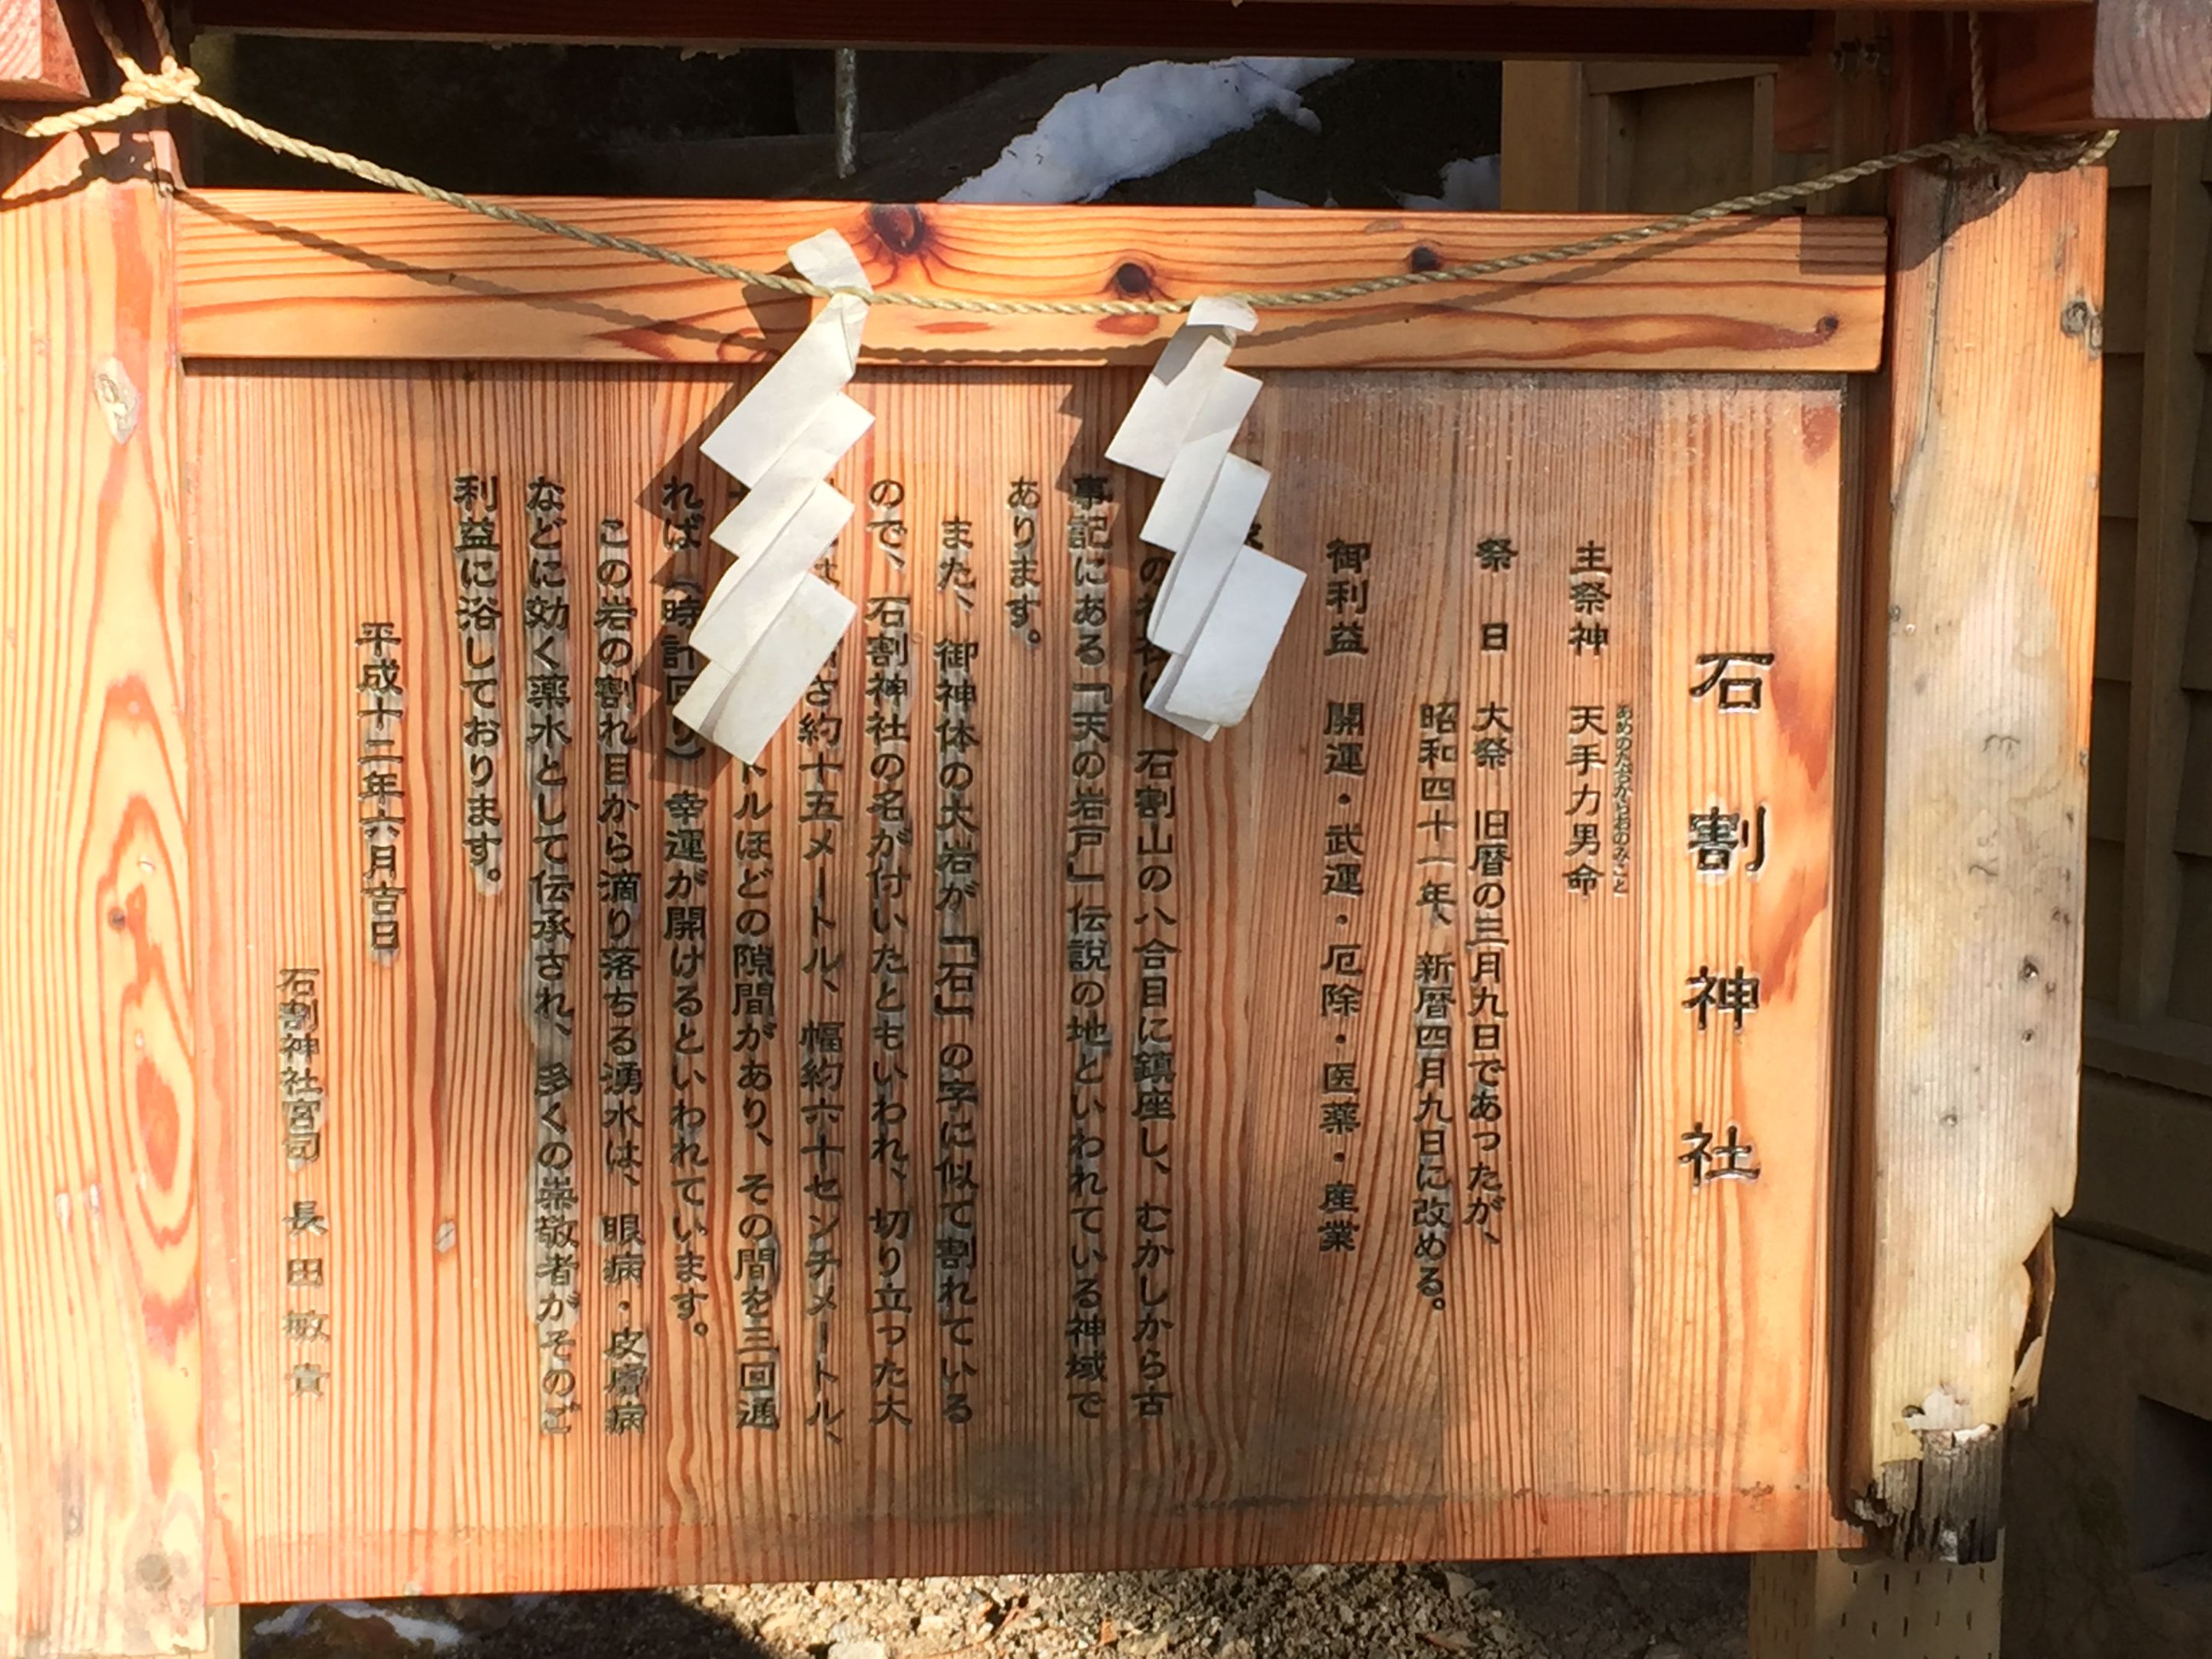 石割神社
あめのたぢからおのみこと
主祭神 天手力男命
祭 日 大祭 旧暦の三月九日であったが、
昭和四十一年、新暦四月九日に改める。
御利益 開運・武運・厄除・医薬・産業
の 石割山の八合目に鎮座し、むかしから古
事記にある「天の岩戸」伝説の地といわれている神域で
あります。
また、御神体の大岩が「石」の字に似て割れている
ので、石割神社の名が付いたともいわれ、切り立った大
さ約十五メートル、幅約六十センチメートル、
トルほどの隙間があり、その間を三回通
れば（時計回り）幸運が開けるといわれています。
この岩の割れ目から滴り落ちる湧水は、眼病・皮膚病
などに効く薬水として伝承され、多くの崇敬者がそのご
利益に浴しております。
平成十二年六月吉日
石割神社宮司 長田敏貴